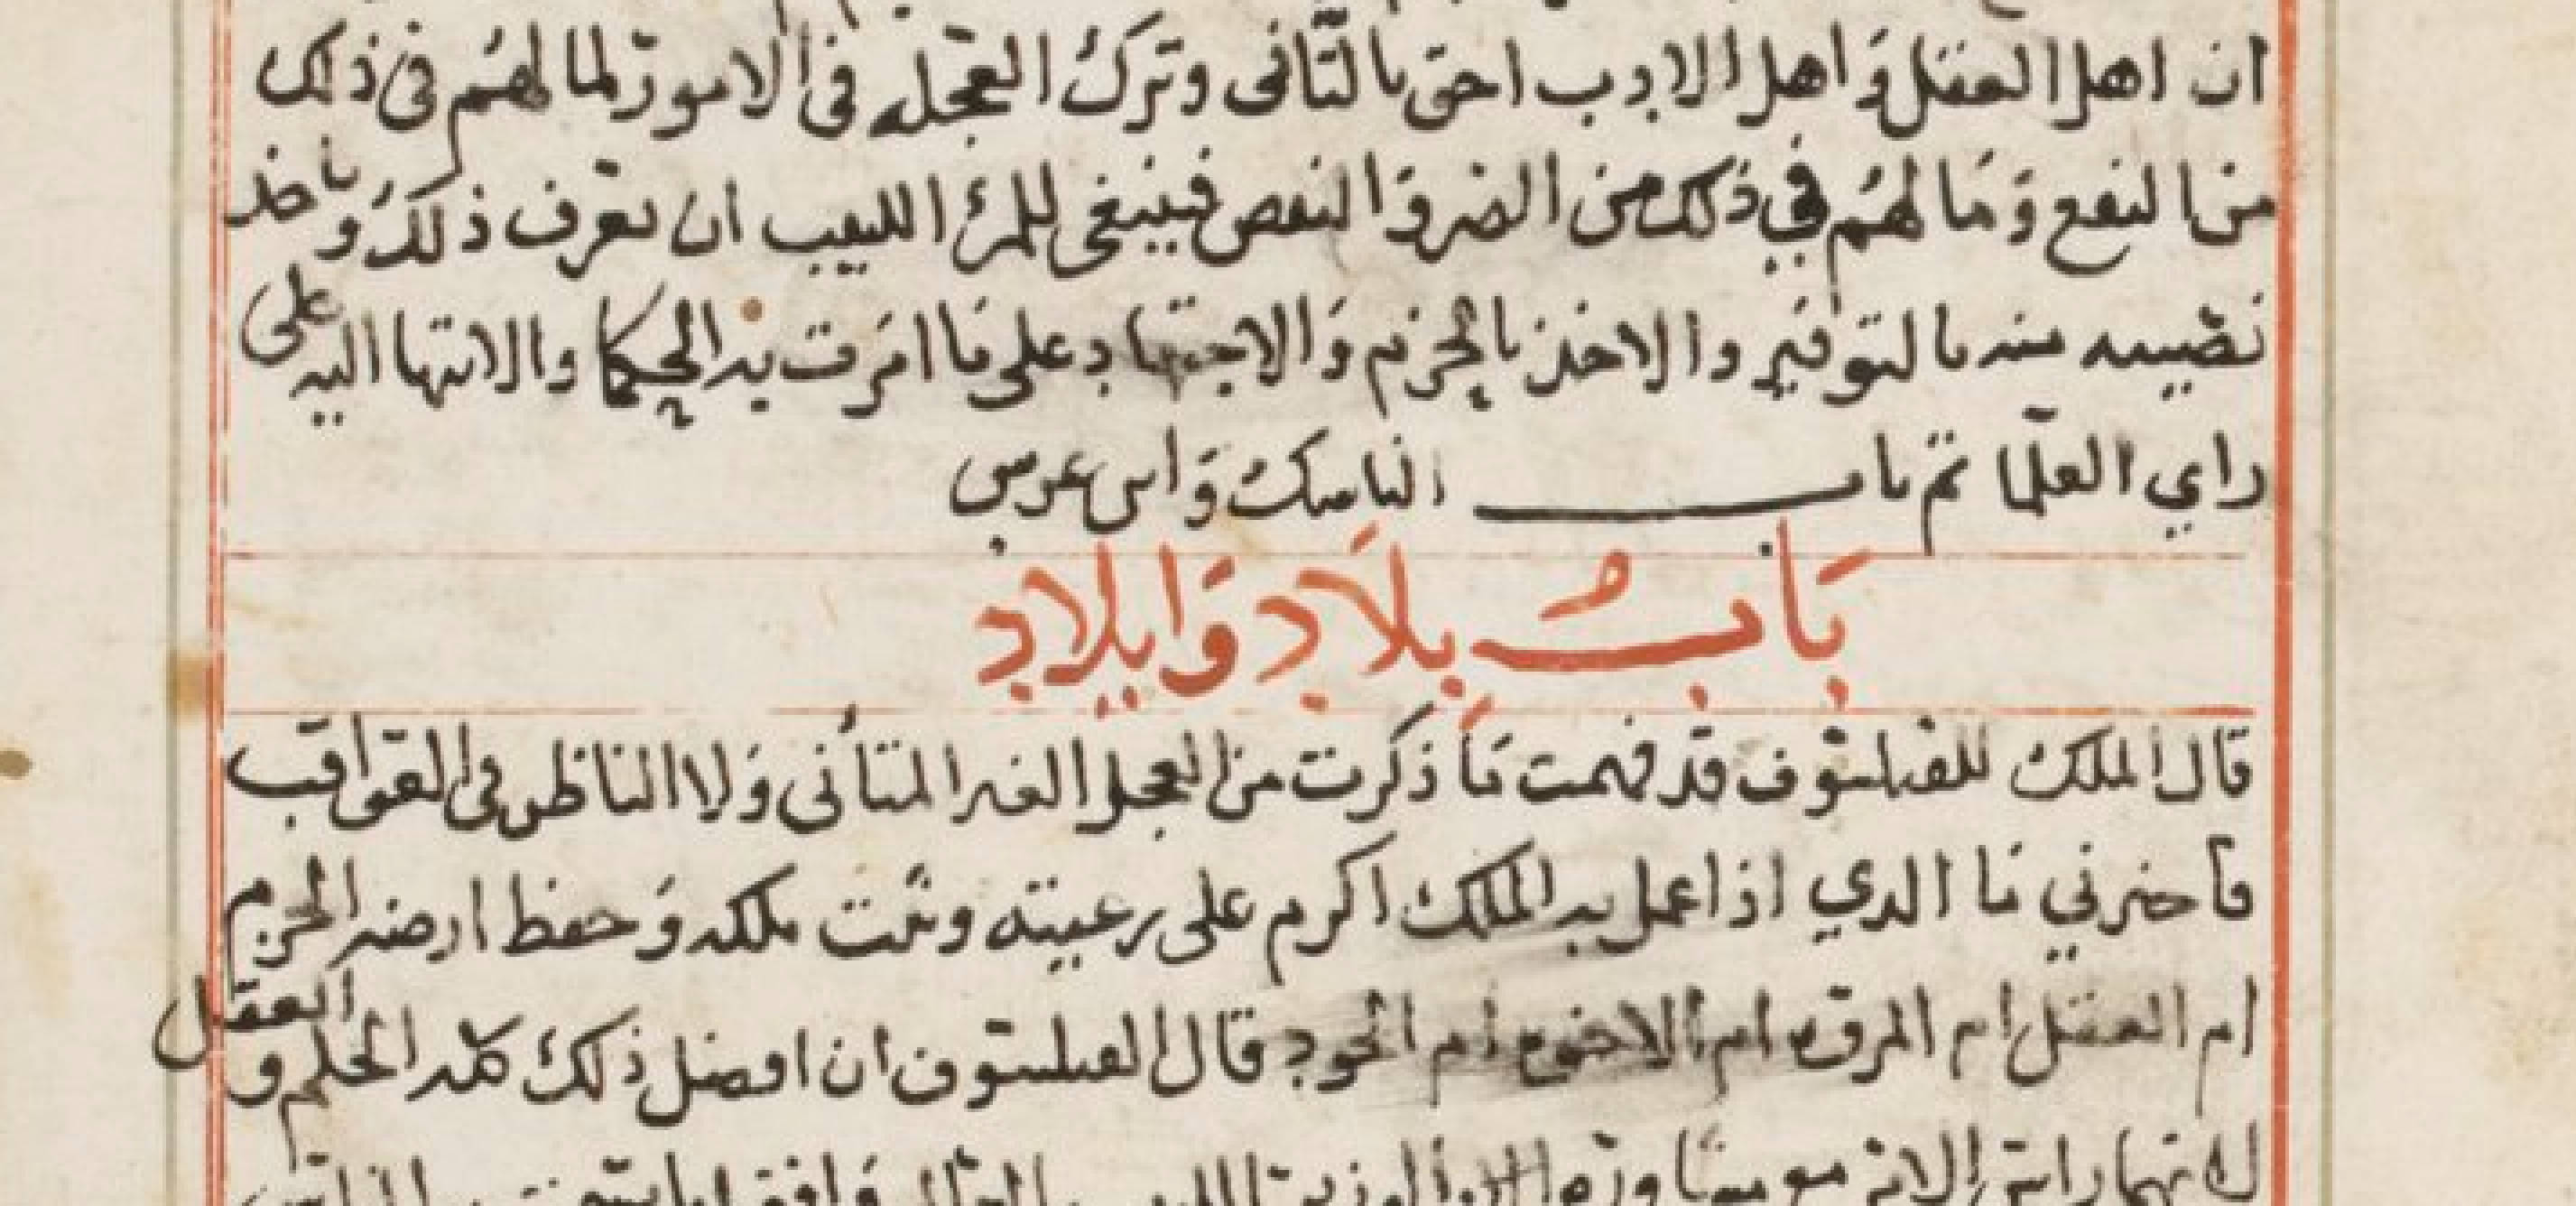 ان اهل العقل وَاهل الادب احق بالتّأنى وترك العجله فى الامور لما لهم فى ذلك
من النفع وَمَا لهم في ذلك من الضر وَالنقص فينبغى للمرء اللبيب ان يعرف ذلك وياخذ
نصيبه منه بالتوفير والاخذ بالحزم وَالاجتهاد على مَا امَرت به الحكما والانتها اليه على
راي العلما تم باب الناسك وَابن عرس
بَابُ بلَاد وَايلاد
قال الملك للفيلسوف قد فهمت مَا ذكرت من العجل الغير المتأنى وَلا الناظر فى العواقب
فاخبرني مَا الدي اذا عمل به الملك اكرم على رعيته وثبت ملكه وَحفظ ارضه الحزم
ام العقل ام المروه ام الاخوه ام الجود قال الفيلسوف ان افضل ذلك كله الحلم و العقل